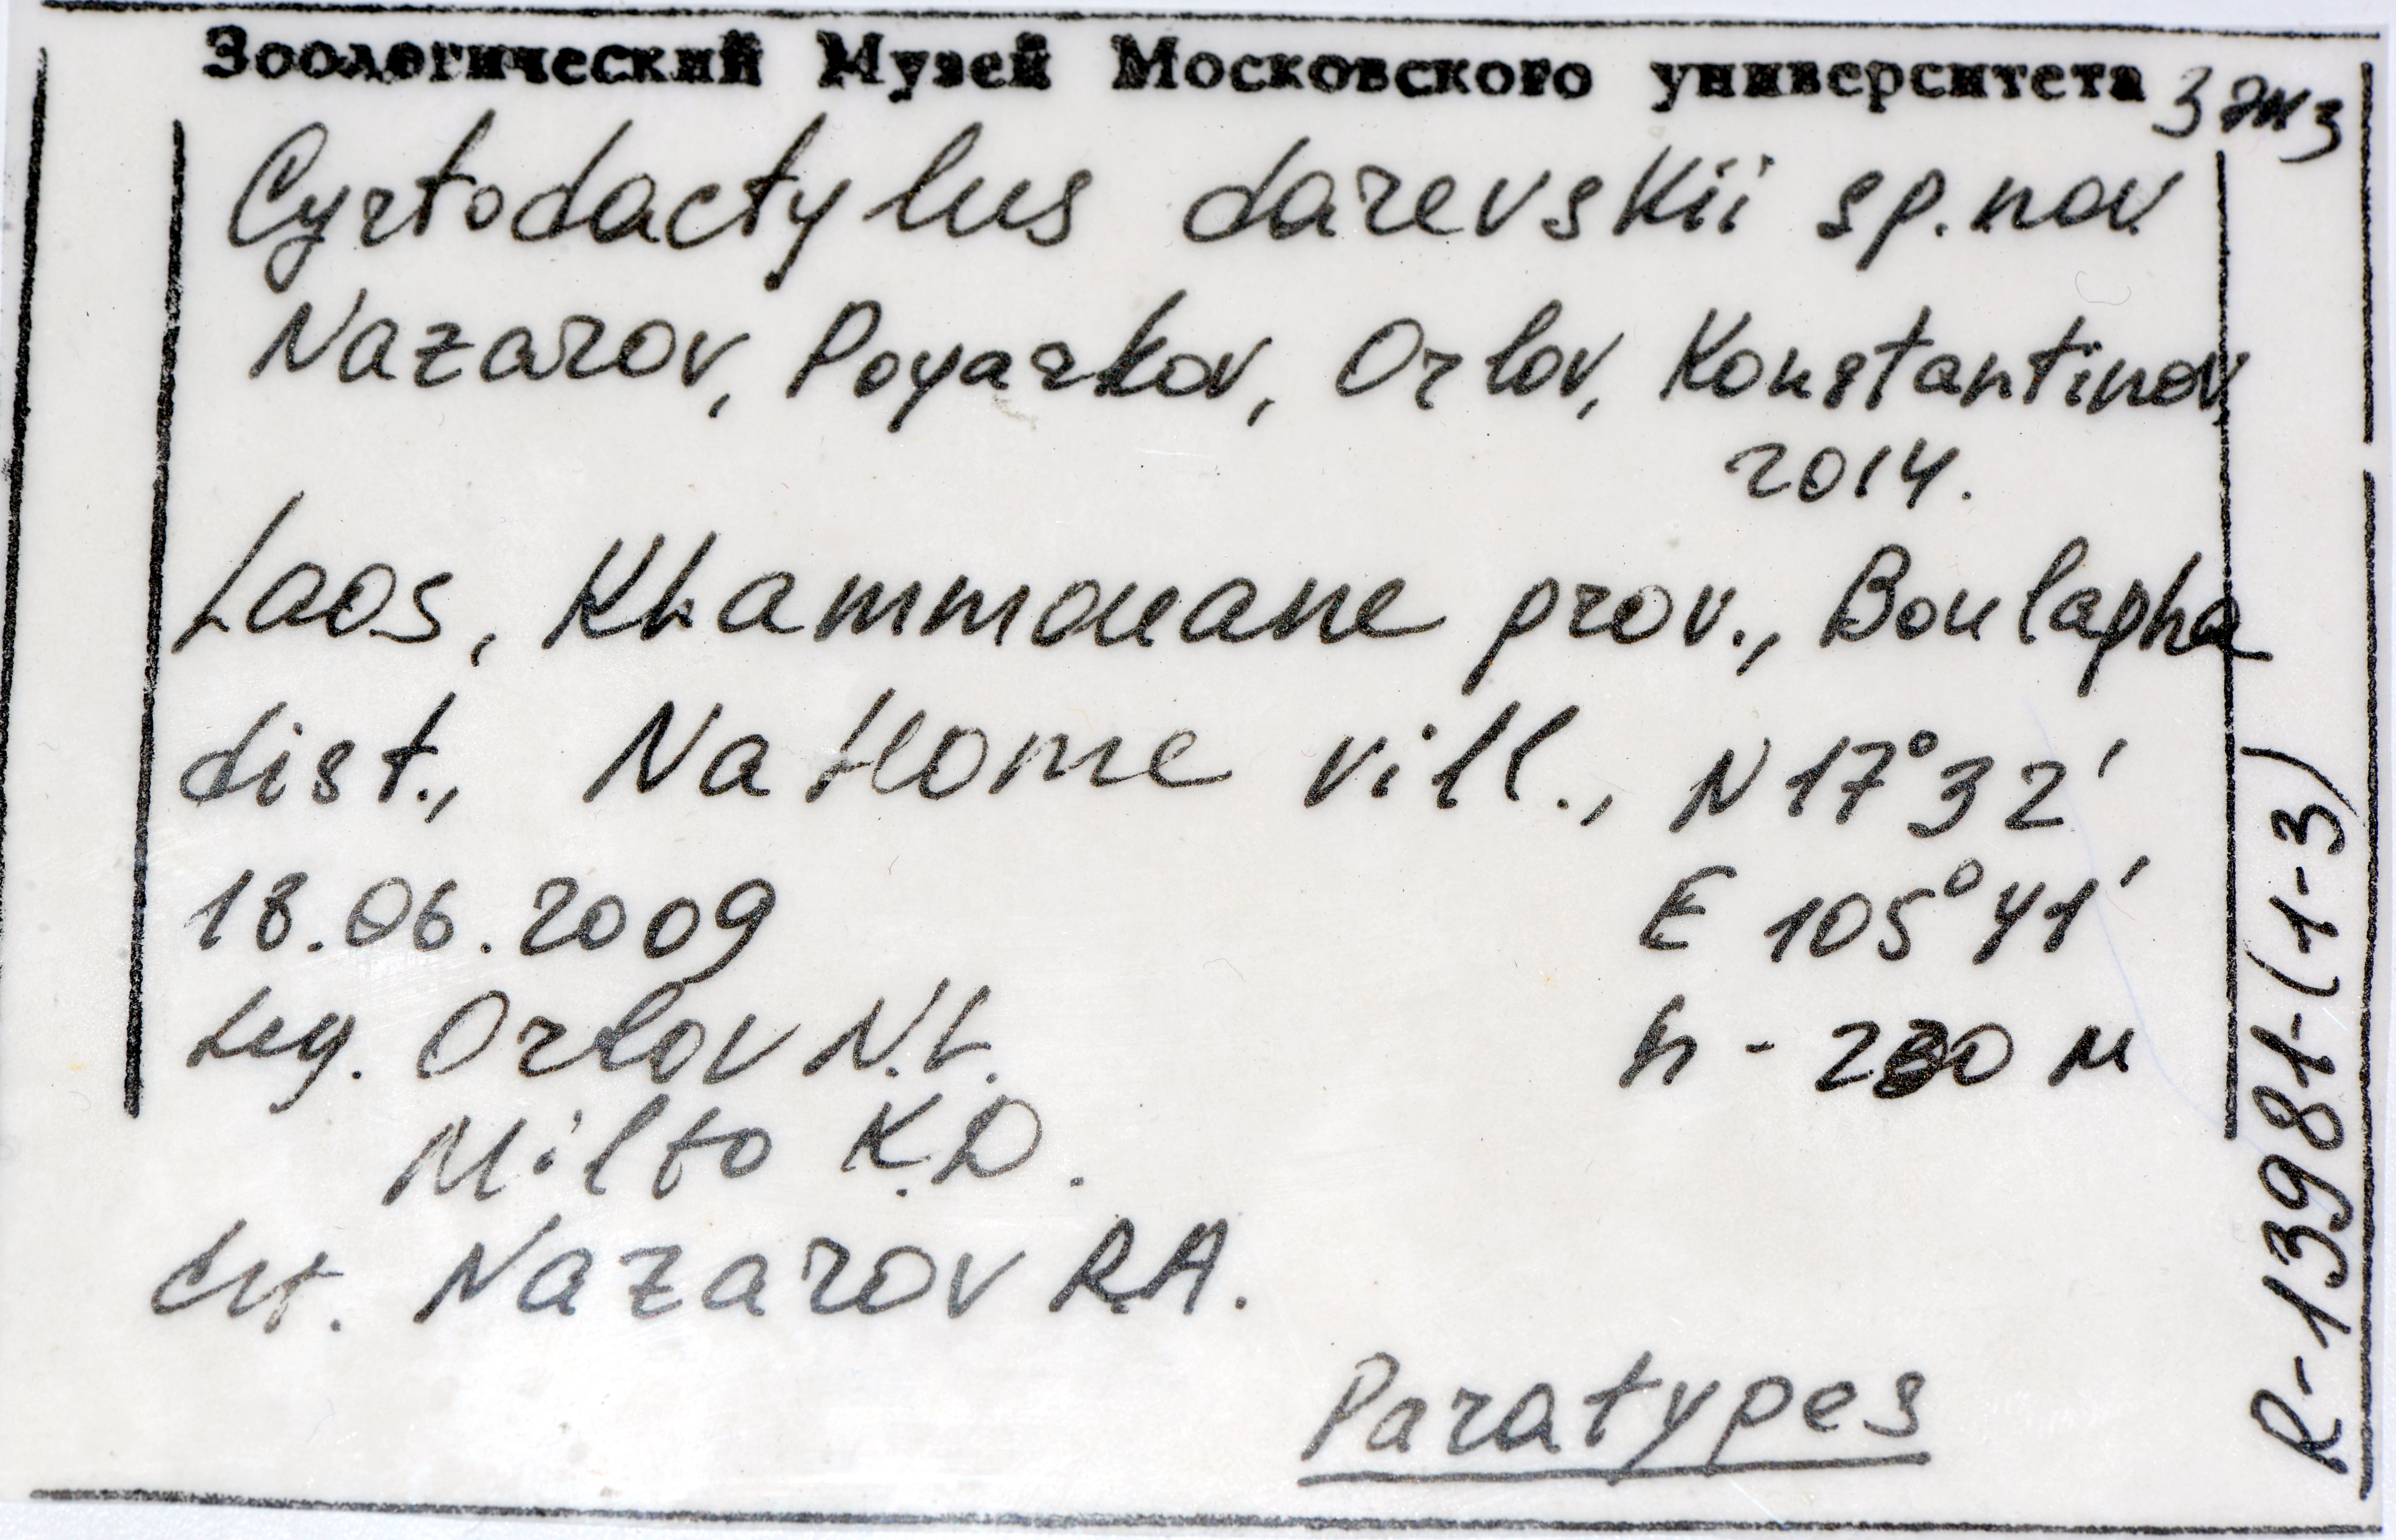 Зоологический Музей Московского университета
3 экз
Cyrtodactylus darevskii sp.nov.
Nazarov, Poyarkov, Orlov, Konstantinov
2014.
Laos, Khammouane prov., Boulapha
dist., Na Home vill., N 17°32'
18.06.2009 E 105°41'
Leg. Orlov N.L. h - 230 м
Milto K.D.
det. Nazarov R.A.
Paratypes
R-13981-(1-3)